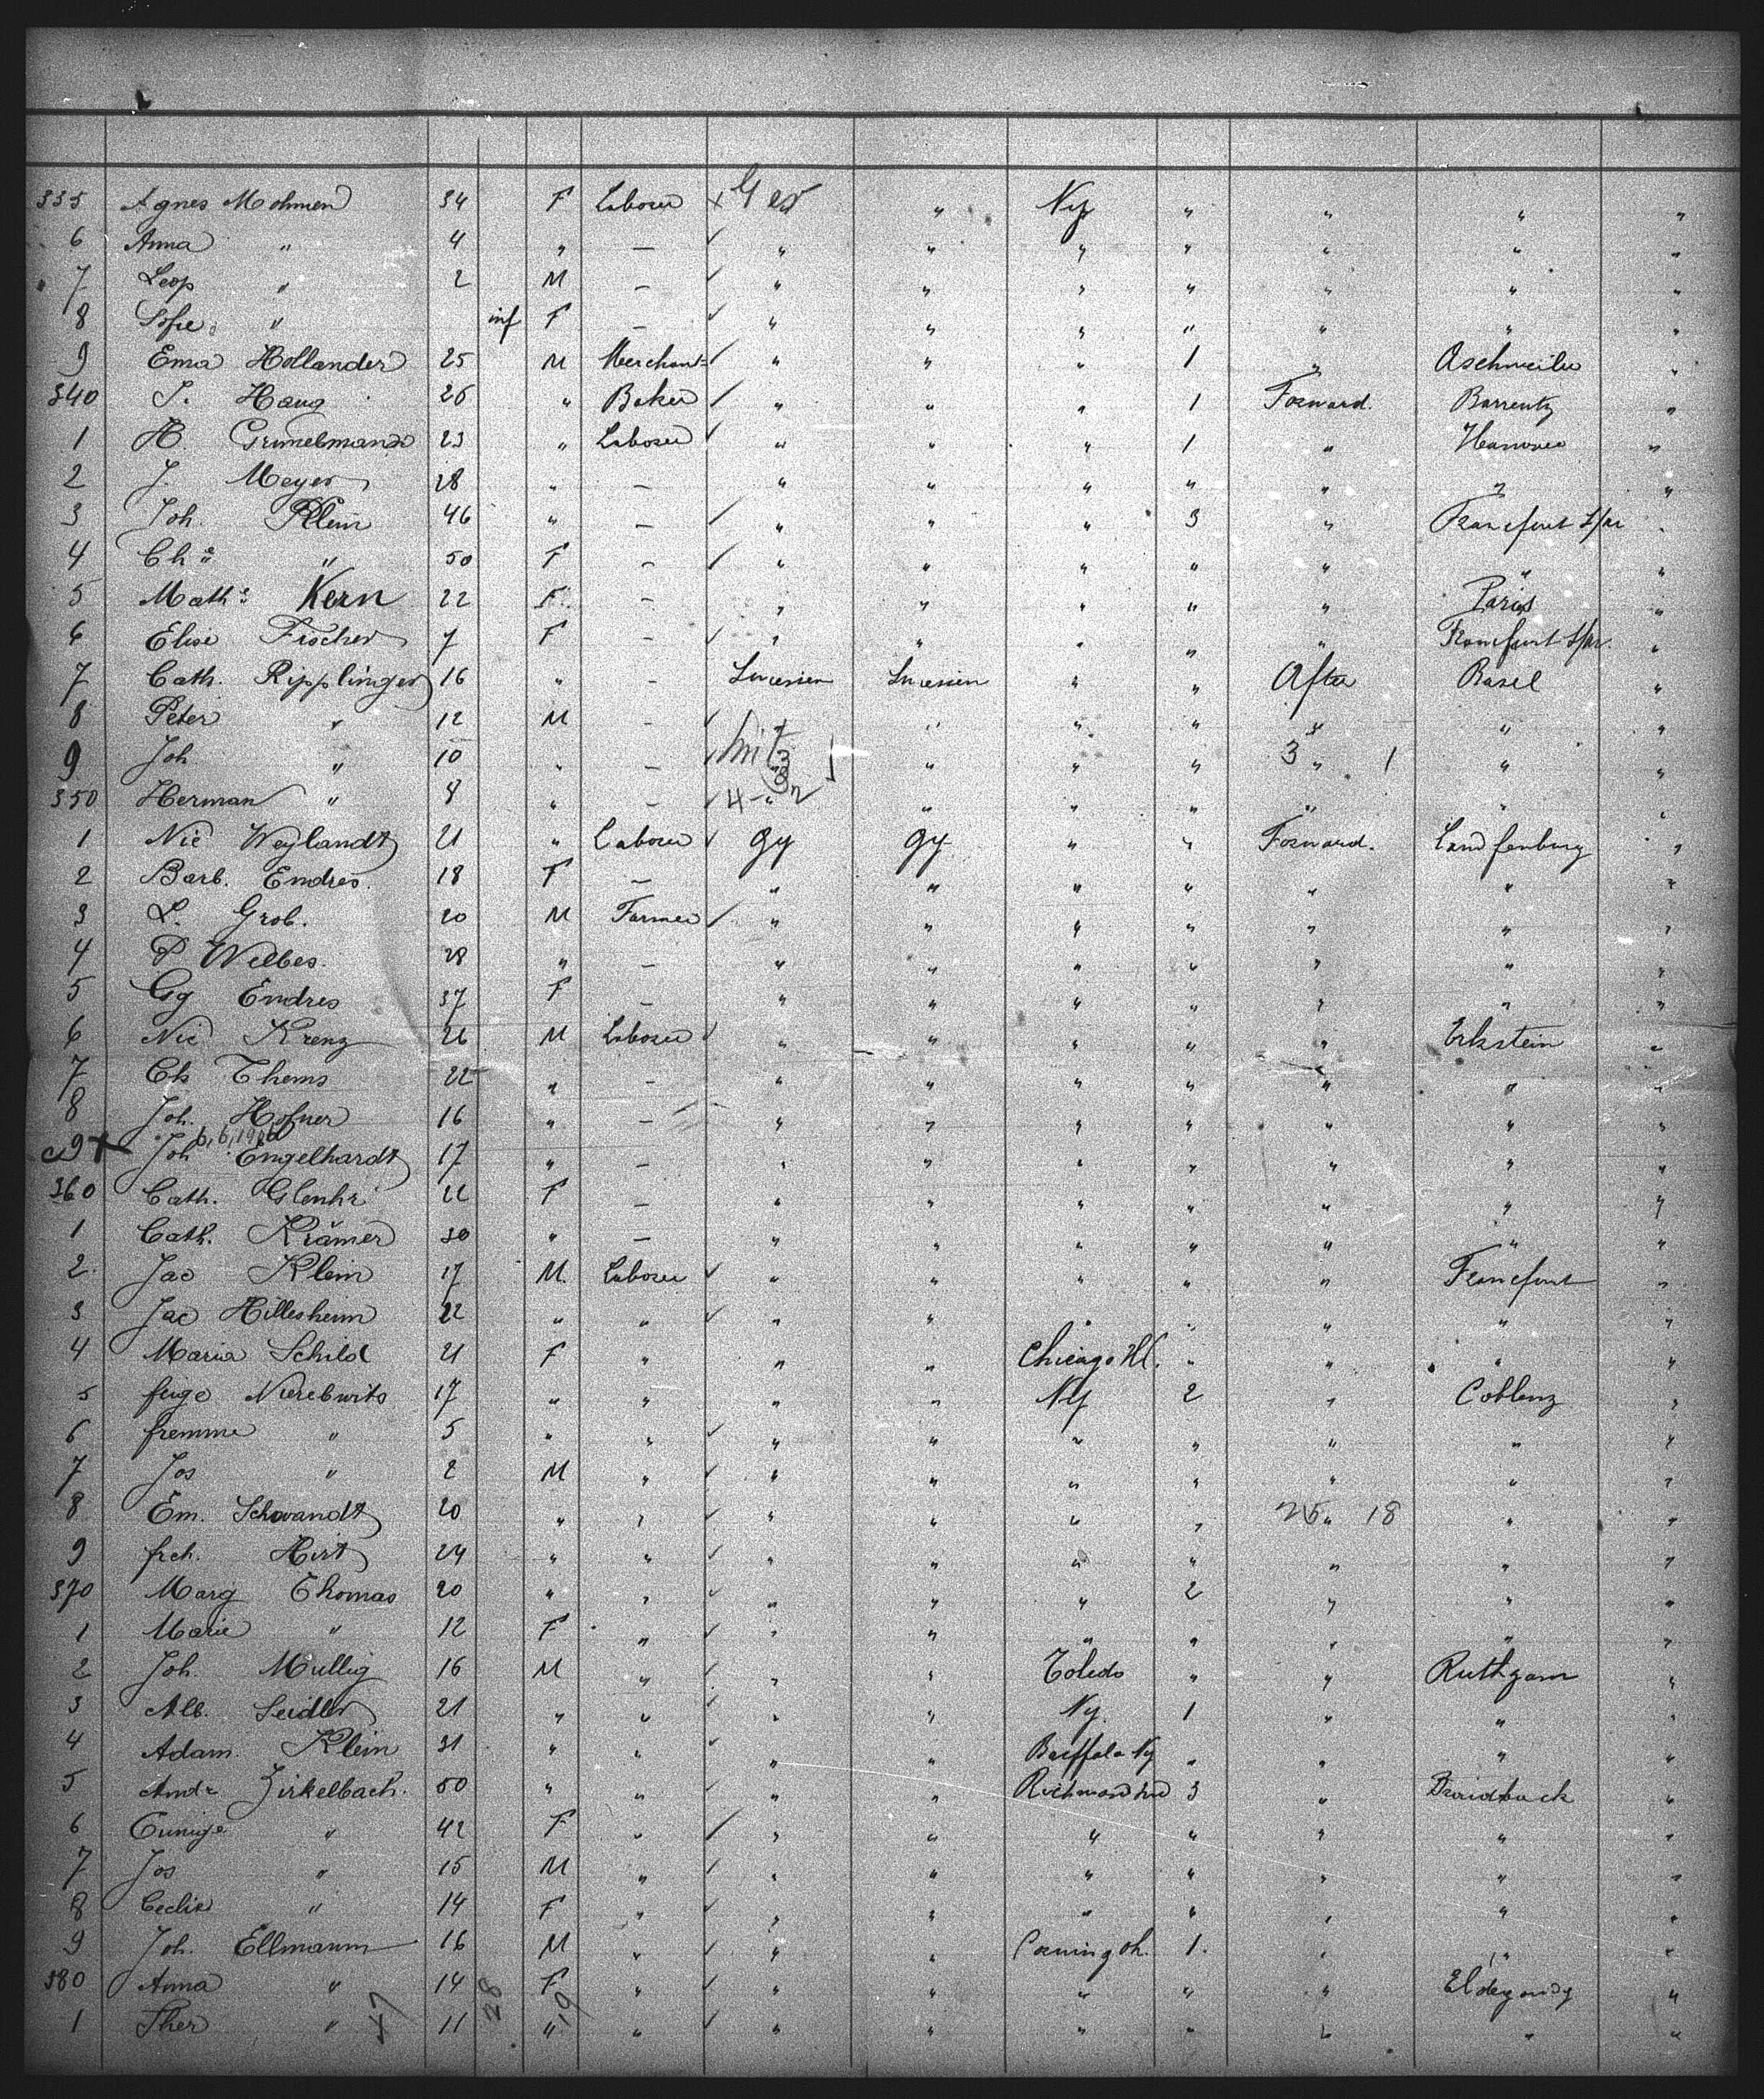 335 Agnes Mohmen 34 F Laborer Ger " Ny " " " "
6 Anna " 4 " — " " " " " " "
7 Leop " 2 M — " " " " " " "
8 Sofie " inf F — " " " " " " "
9 Ema Hollander 25 M Merchant " " " 1 " Aschweiler "
340 J. Haug 26 " Baker " " " 1 Forward. Barrentz "
1 H. Grimelmann 23 " Laborer " " " 1 " Hanover "
2 J. Meyer 28 " — " " " " " " "
3 Joh. Klein 46 " — " " " 3 " Francfurt "
4 Ch " 50 F — " " " " " " "
5 Math. Kern 22 F. — " " " " " Paris "
6 Elise Fischer 7 F — " " " " " Francfurt "
7 Cath. Ripplinger 16 " — " " After Basel "
8 Peter " 12 M — " " " " " "
9 Joh " 10 " — " " " " 3 " 1 " "
350 Herman " 8 " — 4 - " 2 " " " " " "
1 Nic Weylandt 21 " Laborer Gy Gy " " Forward. "
2 Barb. Endres. 18 F — " " " " " " "
3 L. Grob. 20 M Farmer " " " " " " "
4 P Welbes. 28 " — " " " " " " "
5 Gg Endres 37 F — " " " " " " "
6 Nic Krenz 26 M Laborer " " " " " Erkstein "
7 Ch Thems 22 " — " " " " " " "
8 Joh. Hofner 16 " — " " " " " " "
9 X Joh Engelhardt 17 " — " " " " " " "
360 Cath. Glenhr 22 F — " " " " " " "
1 Cath. Krämer 30 " — " " " " " " "
2. Jac Klein 17 M. Laborer " " " " " Francfurt "
3 Jac Hillesheim 22 " " " " " " " " "
4 Maria Schild 21 F " " " Chicago Ill. " " " "
5 feige Nierebwits 17 " " " " NY 2 " Coblenz "
6 fremme " 5 " " " " " " " " "
7 Jos " 2 M " " " " " " " "
8 Em. Schwandt 20 " " " " " " 25 " 18 " "
9 frch. Hirt 24 " " " " " " " " "
370 Marg Thomas 20 " " " " " 2 " " "
1 Marie " 12 F " " " " " " " "
2 Joh. Mullig 16 M " " " Toledo " " Ruthgam "
3 Alb. Seidler 21 " " " " Ny. 1 " " "
4 Adam. Klein 31 " " " " Buffalo Ny " " " "
5 Andr Zirkelbach. 50 " " " " Richmond Ind 3 " Braidback "
6 " 42 F " " " " " " " "
7 Jos " 15 M " " " " " " " "
8 Ceclie " 14 F " " " " " " " "
9 Joh. Ellmann 16 M " " " Corning Oh. 1. " " "
380 Anna " 14 F " " " " " " "
1 Ther " 47 11 28 " 19 " " " " " " " "